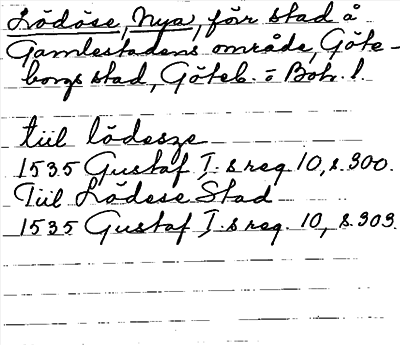 Lödöse, Nya, förr stad å
Gamlestadens område, Göte-
borgs stad, Göteb. o Boh. l.
till lödesze
1535 Gustaf I.s reg. 10, s. 300.
Till Lödese Stad
1535 Gustaf I.s reg. 10, s. 303.